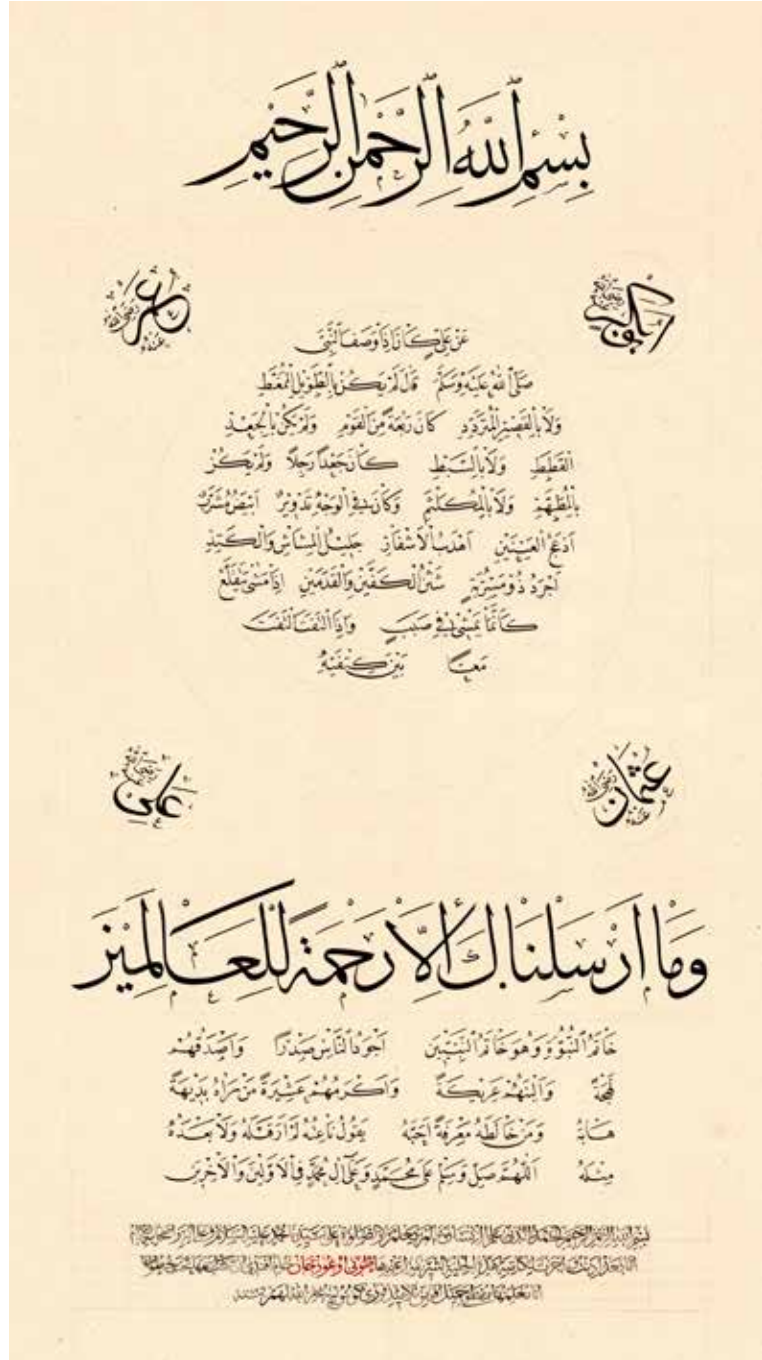 بِسْمِ ٱللَّهِ ٱلرَّحْمٰنِ ٱلرَّحِيمِ
ابوبكر رضي الله عنه
عمر رضي الله عنه
عَنْ عَلِيٍّ كَانَ إِذَا وَصَفَ النَّبِيَّ
صَلَّى اللهُ عَلَيْهِ وَسَلَّمَ قَالَ لَمْ يَكُنْ بِالطَّوِيلِ الْمُمَّغِطِ
وَلَا بِالْقَصِيرِ الْمُتَرَدِّدِ كَانَ رَبْعَةً مِنَ الْقَوْمِ وَلَمْ يَكُنْ بِالْجَعْدِ
الْقَطَطِ وَلَا بِالسَّبْطِ كَانَ جَعْدًا رَجِلًا وَلَمْ يَكُنْ
بِالْمُطَهَّمِ وَلَا بِالْمُكَلْثَمِ وَكَانَ فِي الْوَجْهِ تَدْوِيرٌ اَبْيَضُ مُشْرَبٌ
اَدْعَجُ الْعَيْنَيْنِ اَهْدَبُ الْاَشْفَارِ جَلِيلُ الْمُشَاشِ وَالْكَتَدِ
اَجْرَدُ ذُو مَسْرُبَةٍ شَثْنُ الْكَفَّيْنِ وَالْقَدَمَيْنِ اِذَا مَشٰى تَقَلَّعَ
كَاَنَّمَا يَمْشِي فِي صَبَبٍ وَاِذَا الْتَفَتَ الْتَفَتَ
مَعًا بَيْنَ كَتِفَيْهِ
عثمان رضي الله عنه
علي رضي الله عنه
وَمَا أَرْسَلْنَاكَ إِلَّا رَحْمَةً لِلْعَالَمِينَ
خَاتَمُ النُّبُوَّةِ وَهُوَ خَاتَمُ النَّبِيِّينَ اَجْوَدُ النَّاسِ صَدْرًا وَاَصْدَقُهُمْ
لَهْجَةً وَاَلْيَنُهُمْ عَرِيكَةً وَاَكْرَمُهُمْ عَشِيرَةً مَنْ رَاٰهُ بَدِيهَةً
هَابَهُ وَمَنْ خَالَطَهُ مَعْرِفَةً اَحَبَّهُ يَقُولُ نَاعِتُهُ لَمْ اَرَ قَبْلَهُ وَلَا بَعْدَهُ
مِثْلَهُ اَللّٰهُمَّ صَلِّ وَسَلِّمْ عَلَى مُحَمَّدٍ وَعَلٰى اٰلِ مُحَمَّدٍ فِي الْاَوَّلِينَ وَالْاٰخِرِينَ
بسم الله الرحمن الرحيم الحمد لله الذي